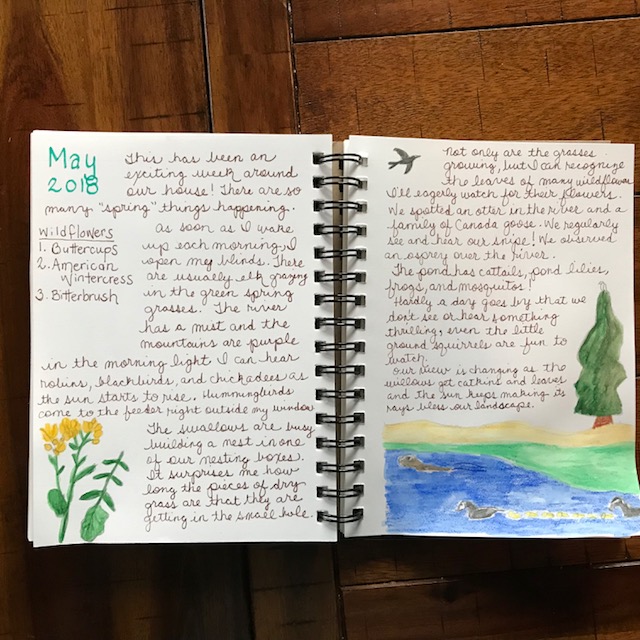 May
2018
Wildflowers
1. Buttercups
2. American
Wintercress
3. Bitterbrush
This has been an
exciting week around
our house! There are so
many "spring" things happening.
As soon as I wake
up each morning, I
open my blinds. There
are usually elk grazing
in the green spring
grasses. The river
has a mist and the
mountains are purple
in the morning light. I can hear
robins, blackbirds, and chickadees as
the sun starts to rise. Hummingbirds
come to the feeder right outside my window
The swallows are busy
building a nest in one
of our nesting boxes.
It surprises me how
long the pieces of dry
grass are that they are
getting in the small hole.
Not only are the grasses
growing, but I can recognize
the leaves of many wildflowers
I'll eagerly watch for their flowers.
We spotted an otter in the river and a
family of Canada goose. We regularly
see and hear our snipe! We observed
an osprey over the river.
The pond has cattails, pond lilies,
frogs, and mosquitos!
Hardly a day goes by that we
don't see or hear something
thrilling, even the little
ground squirrels are fun to
watch.
Our view is changing as the
willows get catkins and leaves
and the sun keeps making its
rays bless our landscape.